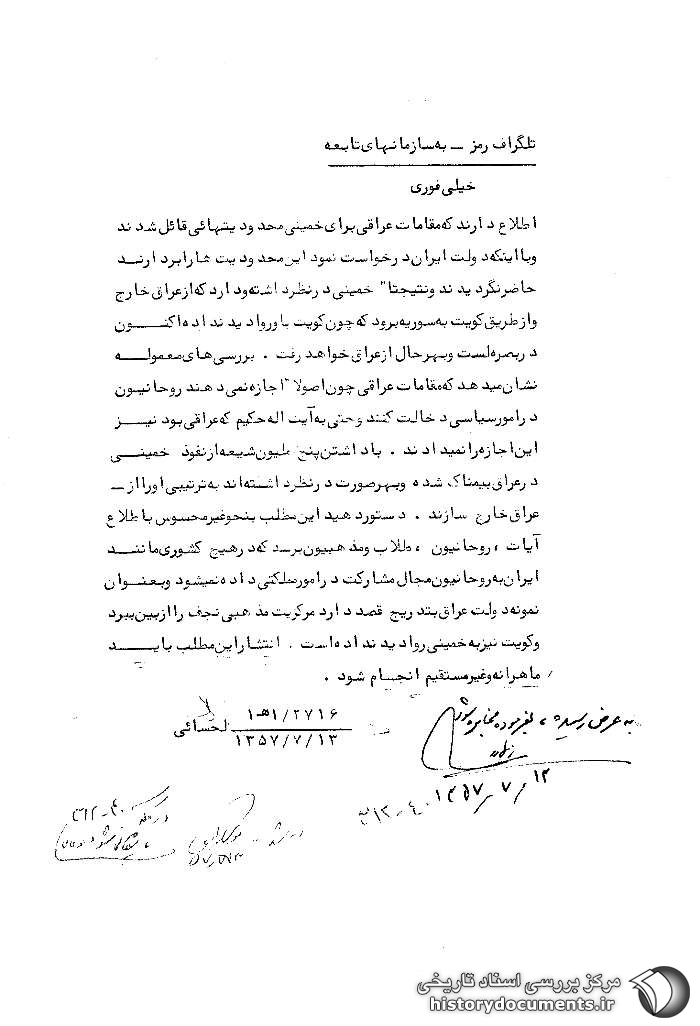 تلگراف رمز ــ به سازمانهای تابعه
خیلی فوری
اطلاع دارند که مقامات عراقی برای خمینی محدودیتهائی قائل شدند
وبا اینکه دولت ایران درخواست نمود این محدودیت ها را بردارند
حاضر نگردیدند ونتیجتا" خمینی درنظر داشته ودارد که از عراق خارج
واز طریق کویت به سوریه برود که چون کویت باو روادید نداده اکنون
در بصره است وبهرحال از عراق خواهد رفت . بررسی های معموله
نشان میدهد که مقامات عراقی چون اصولا" اجازه نمی دهند روحانیون
در امور سیاسی دخالت کنند وحتی به آیت اله حکیم که عراقی بود نیز
این اجازه را نمیدادند . با داشتن پنج ملیون شیعه از نفوذ خمینی
در عراق بیمناک شده وبهرصورت درنظر داشته اند به ترتیبی او را از ــ
عراق خارج سازند . دستور دهید این مطلب بنحو غیر محسوس باطلاع
آیات ، روحانیون ، طلاب ومذهبیون برسد که در هیچ کشوری مانند
ایران به روحانیون مجال مشارکت در امور مملکتی داده نمیشود وبعنوان
نمونه دولت عراق بتدریج قصد دارد مرکزیت مذهبی نجف را از بین ببرد
وکویت نیز به خمینی روادید نداده است . انتشار این مطلب باید
ماهرانه وغیر مستقیم انجام شود .
۲۷۱۶/۱ه‍۱
لحسائی
۱۳۵۷/۷/۱۳
به عرض رسید ، بفرموده مخابره شود
۱۳۵۷/۷/۱۲
۳۱۲-۴۰
۳۱۲-۴۰
مرکز بررسی اسناد تاریخی
historydocuments.ir